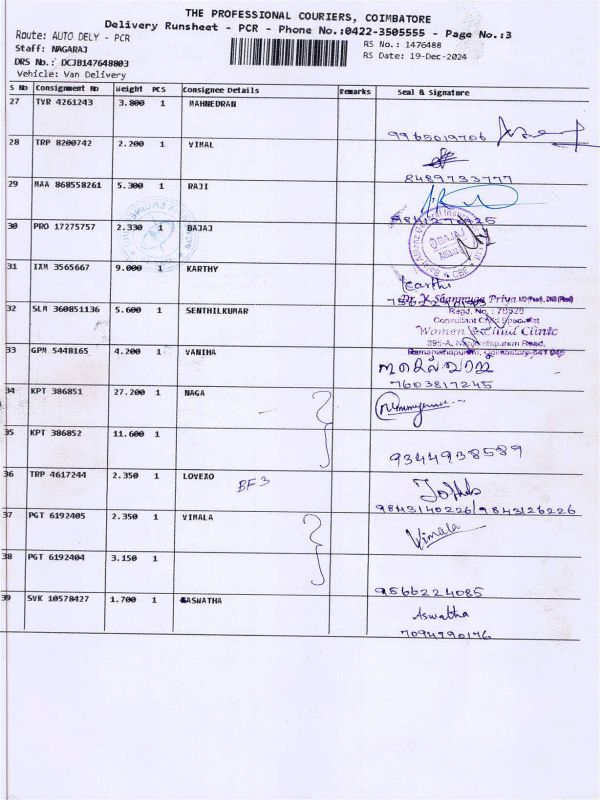 THE PROFESSIONAL COURIERS, COIMBATORE
Delivery Runsheet - PCR - Phone No.:0422-3505555 - Page No.:3
Route: AUTO DELY - PCR
RS No.: 1476488
Staff: NAGARAJ
RS Date: 19-Dec-2024
DRS No.: DCJB147648803
Vehicle: Van Delivery
S No Consignment No Weight PCS Consignee Details Remarks Seal & Signature
27 TVR 4261243 3.800 1 MAHNEDRAN
9965019706
28 TRP 8200742 2.200 1 VIMAL
8489733777
29 MAA 868558261 5.300 1 RAJI
30 PRO 17275757 2.330 1 BAJAJ
BAJAJ
Allianz
CBE
31 IXM 3565667 9.000 1 KARTHY
Karthi
32 SLM 360851136 5.600 1 SENTHILKUMAR
Dr. K Shanmuga Priya
Regd. No. : 78528
Consultant Child Specialist
Women & Child Clinic
395-A, Nanjundapuram Road,
Ramanathapuram, Coimbatore-641 045
33 GPM 5448165 4.200 1 VANIHA
7603817245
34 KPT 386851 27.200 1 NAGA
35 KPT 386852 11.600 1
9344938589
36 TRP 4617244 2.350 1 LOVEXO
BF3
9843140226/9843126226
37 PGT 6192405 2.350 1 VIMALA
Vimala
38 PGT 6192404 3.150 1
9566224085
39 SVK 10578427 1.700 1 ASWATHA
Aswatha
7094790176